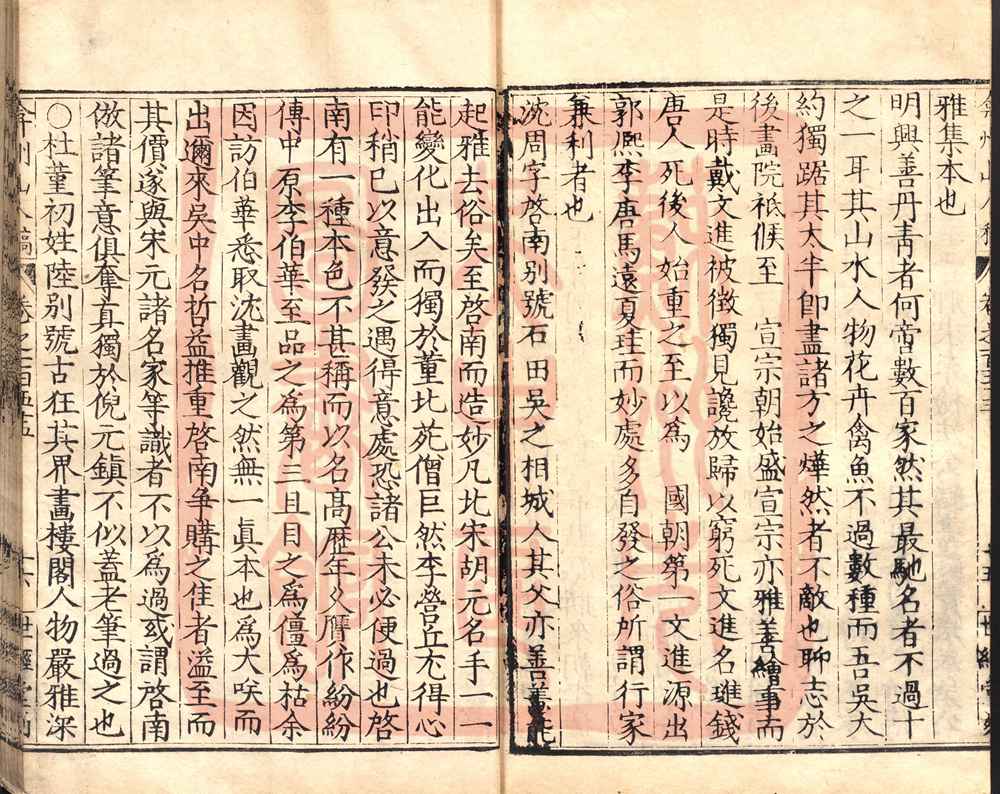 雅集本也
明興善丹青者何啻數百家然其最馳名者不過十
之一耳其山水人物花卉禽魚不過數種而吾吳大
約獨踞其太半即盡諸方之燁然者不敵也聊志於
後畫院祗候至 宣宗朝始盛宣宗亦雅善繪事而
是時戴文進被徵獨見讒放歸以窮死文進名璡錢
唐人死後人始重之至以為 國朝第一文進源出
郭熈李唐馬遠夏珪而妙處多自發之俗所謂行家
兼利者也
沈周字啓南別號石田吳之相城人其父亦善
起雅去俗矣至啓南而造妙凡北宋胡元名手一一
能變化出入而獨於董北苑僧巨然李營丘尤得心
印稍已以意發之遇得意處恐諸公未必便過也啓
南有一種本色不甚稱而以名高歷年久贋作紛紛
傳中原李伯華至品之為第三且目之為僵為枯余
因訪伯華悉取沈畫觀之然無一真本也為大咲而
出邇來吳中名哲益推重啓南争購之隹者溢至而
其價遂與宋元諸名家等識者不以為過或謂啓南
倣諸筆意俱奪真獨於倪元鎮不似蓋老筆過之也
○杜菫初姓陸別號古狂其界畫樓閣人物嚴雅深
弇州山人稿 卷之一百五十五 十六 世經堂刻